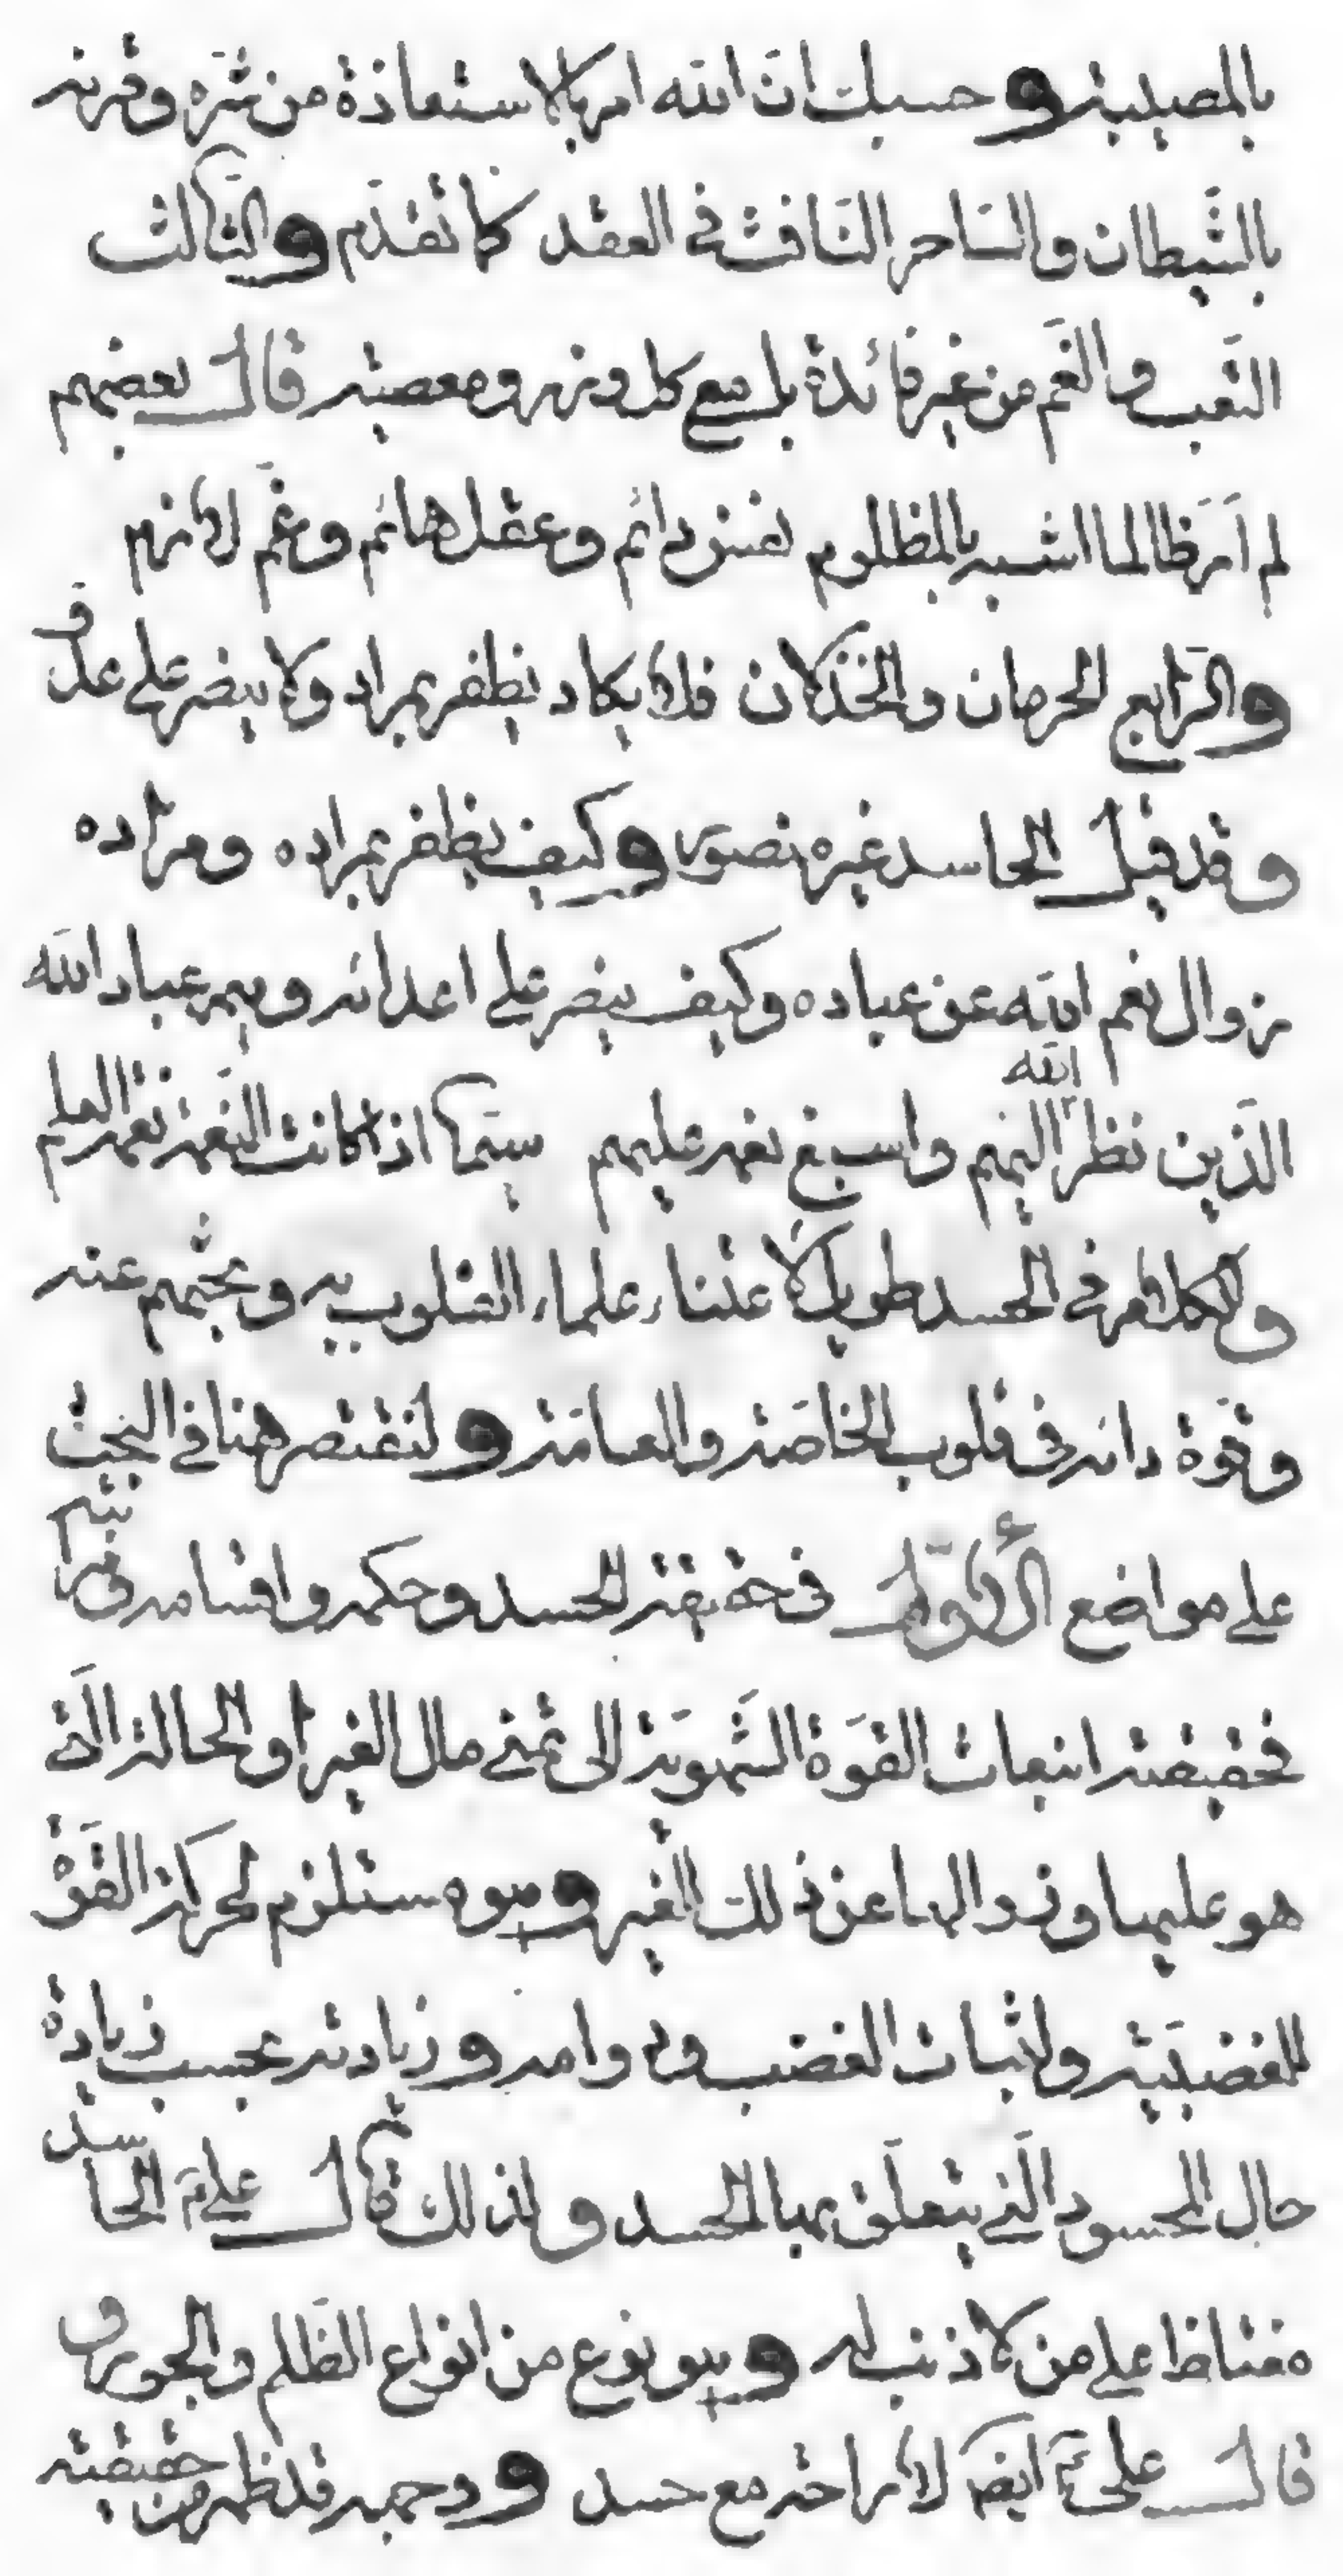 بالمصيبة وحسبك ان الله امر بالاستعاذة من شره وقرنه
بالشيطان والساحر النافث في العقد كما تقدم والثالث
التعب والغم من غير فائدة بل مع كل وزر ومعصية قال بعضهم
لم أر ظالما اشبه بالمظلوم نفس دائم وعقل هائم وغم لازم
والرابع الحرمان والخذلان فلا يكاد يظفر بمراد ولا ينصر على عدو
وقد قيل الحاسد غير منصور وكيف يظفر بمراده ومراده
زوال نعم الله عن عباده وكيف ينصر على اعدائه وهم عباد الله
الذين نظر الله اليهم واسبغ نعمه عليهم سيما اذا كانت النعمة نعمة العلم
والكلام في الحسد طويل لاعتناء علماء القلوب به وبحثهم عنه
وقوة دائه في قلوب الخاصة والعامة ولنقتصر هنا في البحث
على مواضع الأول في حقيقة الحسد وحكمه واقسامه ومراتبه
فحقيقته انبعاث القوة الشهوية الى تمني مال الغير او الحالة التي
هو عليها وزوالها عن ذلك الغير وهو مستلزم لحركة القوة
الغضبية ولاثبات الغضب ودوامه وزيادته بحسب زيادة
حال المحسود التي يتعلق بها الحسد ولذلك قال علي ع الحاسد
مغتاظ على من لا ذنب له وهو نوع من انواع الظلم والجور و
قال علي ع ايضا لا راحة مع حسد ووجهه قد ظهر من حقيقته